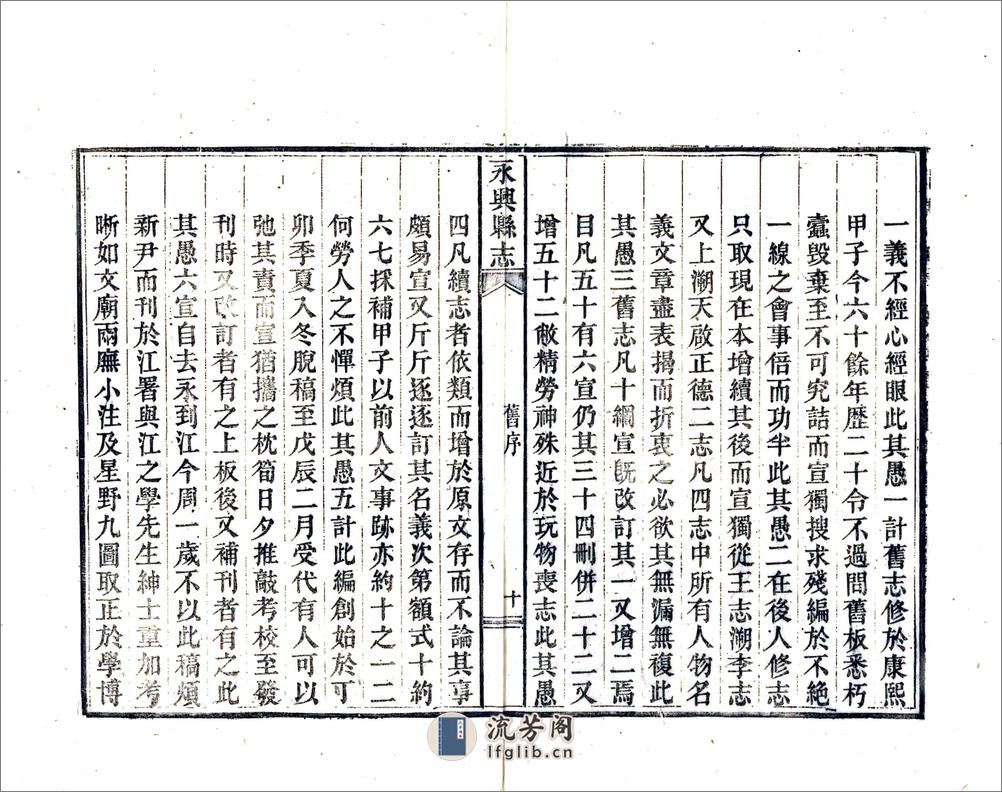 一義不經心經眼此其愚一計舊志修於康熙
甲子今六十餘年歷二十令不過問舊板悉朽
蠹毀棄至不可究詰而宣獨搜求殘編於不絕
一線之會事倍而功半此其愚二在後人修志
只取現在本增續其後而宣獨從王志溯李志
又上溯天啟正德二志凡四志中所有人物名
義文章盡表揭而折衷之必欲其無漏無複此
其愚三舊志凡十綱宣旣改訂其一又增二焉
目凡五十有六宣仍其三十四刪併二十二又
增五十二敝精勞神殊近於玩物喪志此其愚
永興縣志
舊序
十
四凡續志者依類而增於原文存而不論其事
頗易宣又斤斤逐逐訂其名義次第額式十約
六七採補甲子以前人文事跡亦約十之一二
何勞人之不憚煩此其愚五計此編創始於丁
卯季夏入冬脫稿至戊辰二月受代有人可以
弛其責而宣猶攜之枕笥日夕推敲考校至發
刊時又改訂者有之上板後又補刊者有之此
其愚六宣自去永到江今周一歲不以此稿煩
新尹而刊於江署與江之學先生紳士重加考
晰如文廟兩廡小注及星野九圖取正於學博
流芳阁
lfglib.cn